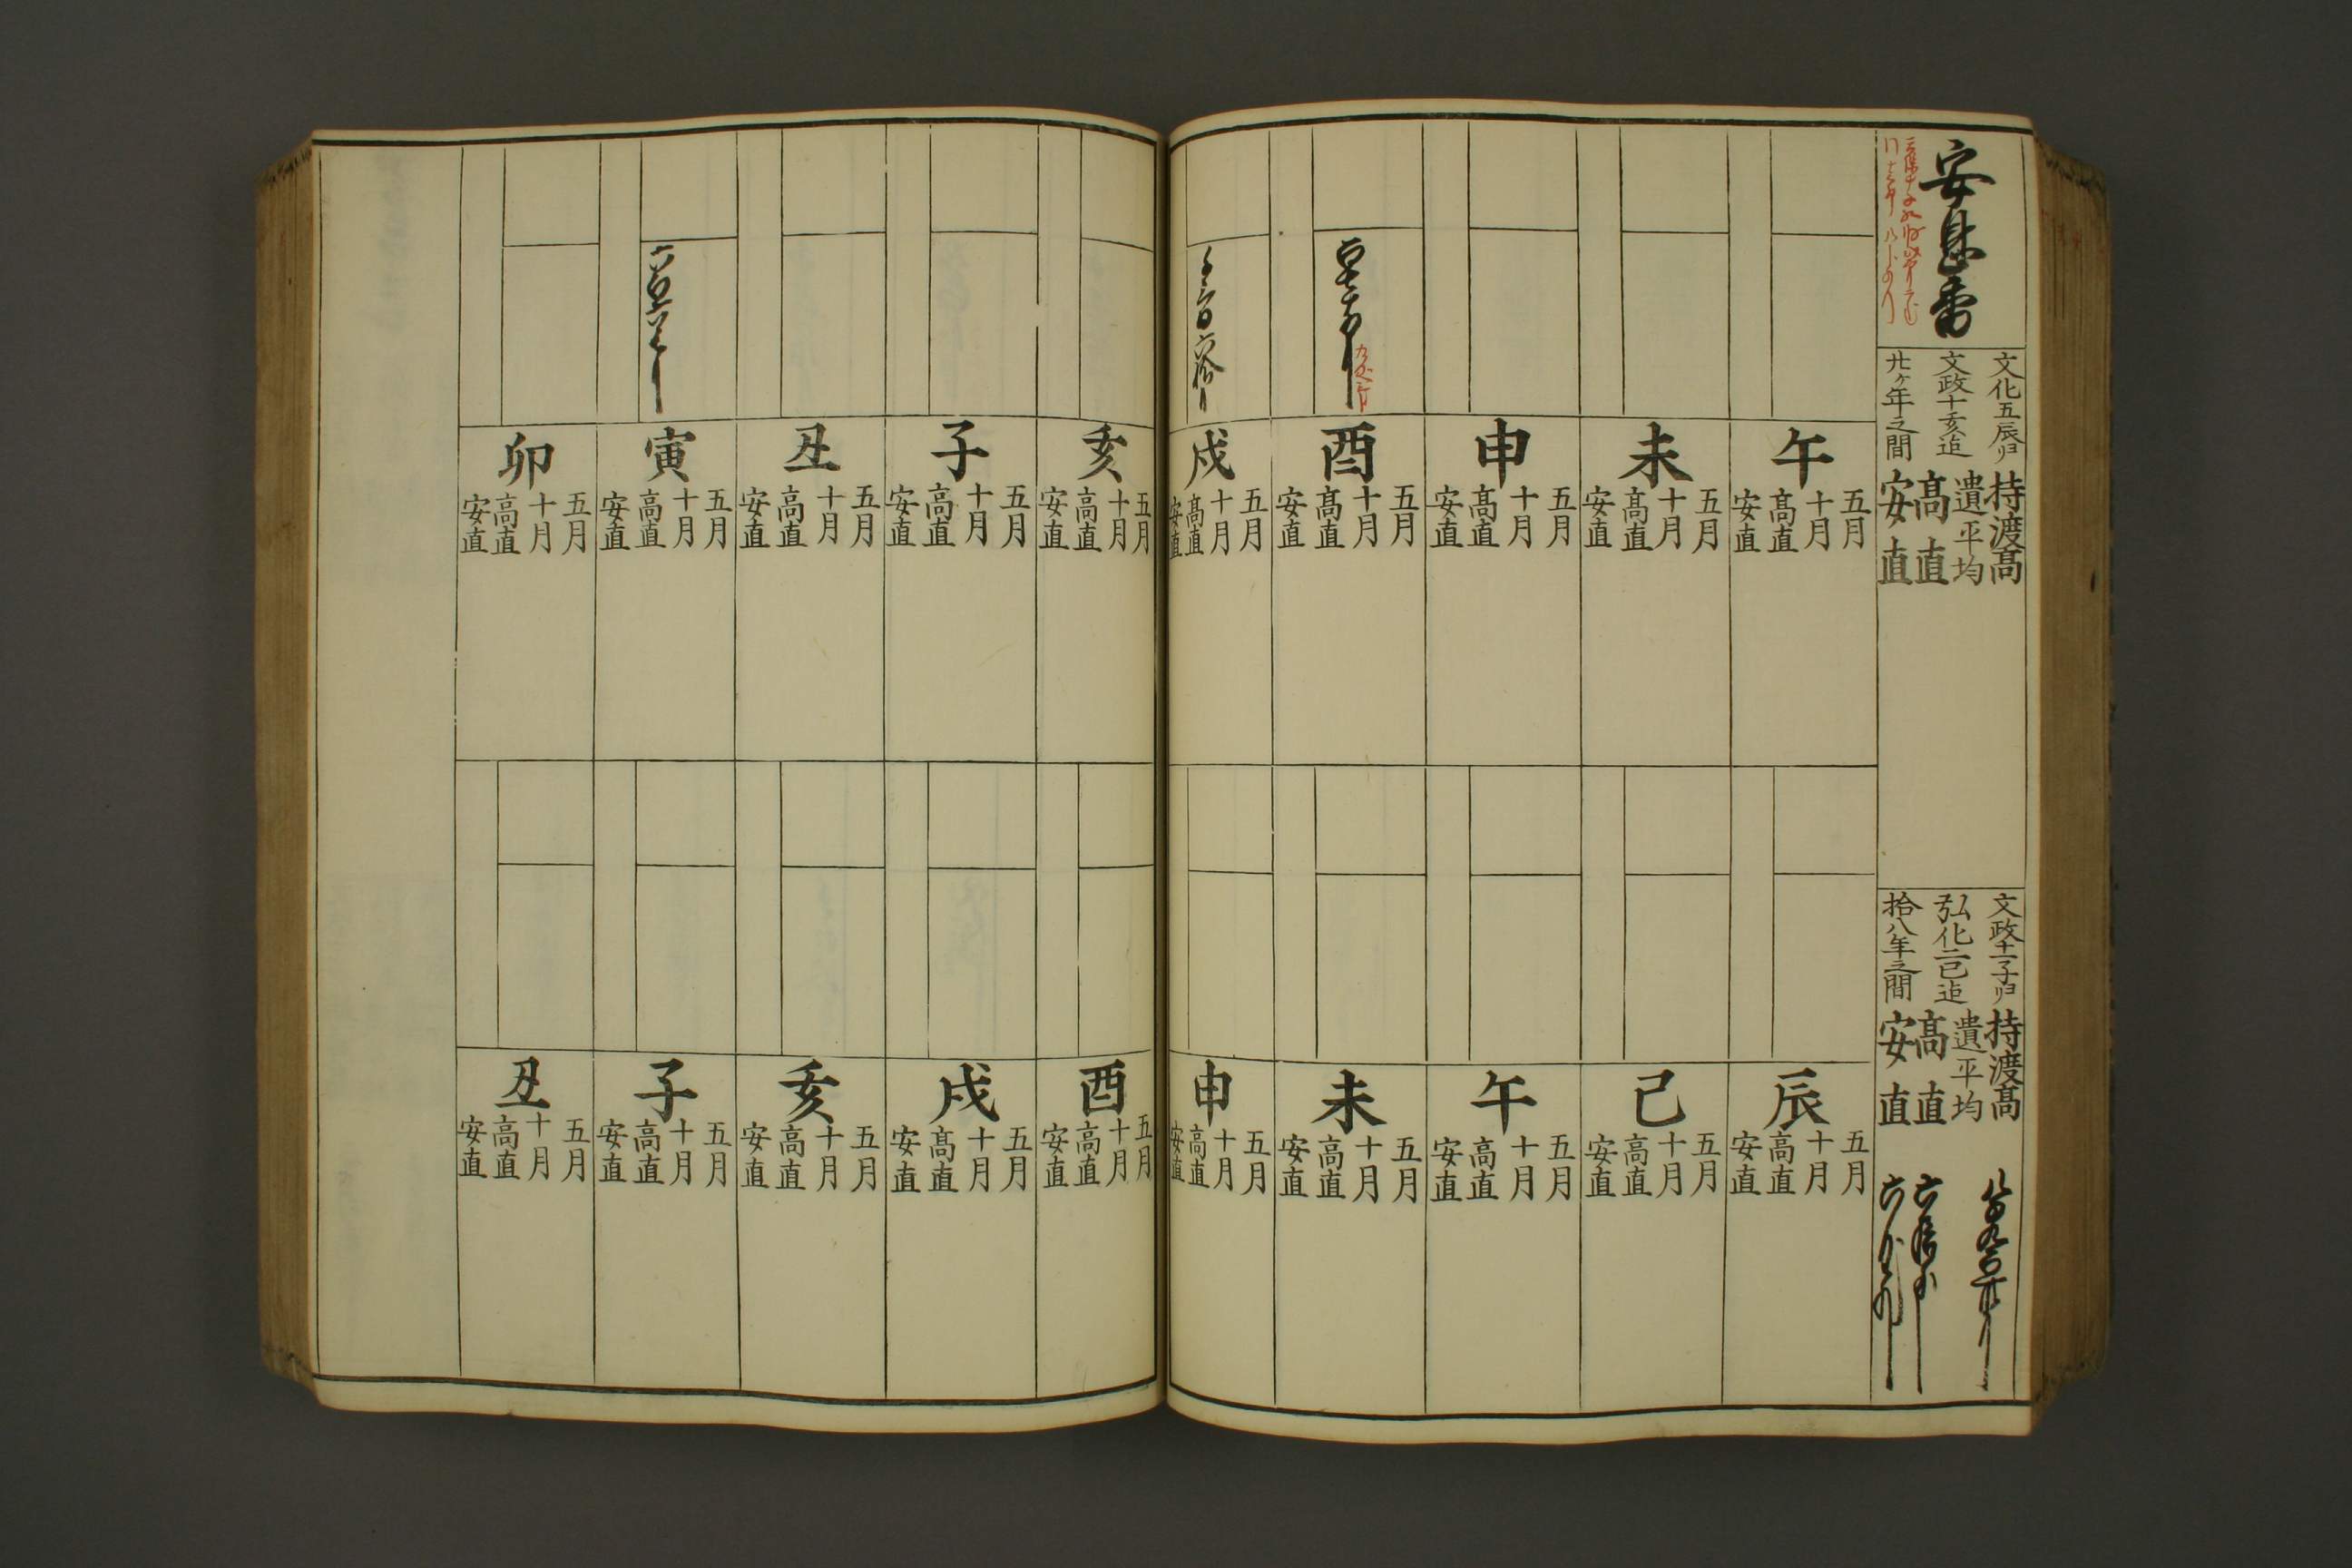 安息香
文化五辰ゟ
文政十亥迄
廿ヶ年之間
持渡髙
遣平均
髙直
安直
文政十一子ゟ
弘化二巳迄
拾八年之間
持渡髙
遣平均
髙直
安直
午
五月
十月
髙直
安直
未
五月
十月
髙直
安直
申
五月
十月
髙直
安直
酉
五月
十月
髙直
安直
戌
五月
十月
髙直
安直
辰
五月
十月
高直
安直
己
五月
十月
高直
安直
午
五月
十月
高直
安直
未
五月
十月
高直
安直
申
五月
十月
高直
安直
亥
五月
十月
高直
安直
子
五月
十月
高直
安直
丑
五月
十月
高直
安直
寅
五月
十月
高直
安直
卯
五月
十月
高直
安直
酉
五月
十月
高直
安直
戌
五月
十月
髙直
安直
亥
五月
十月
高直
安直
子
五月
十月
高直
安直
丑
五月
十月
高直
安直